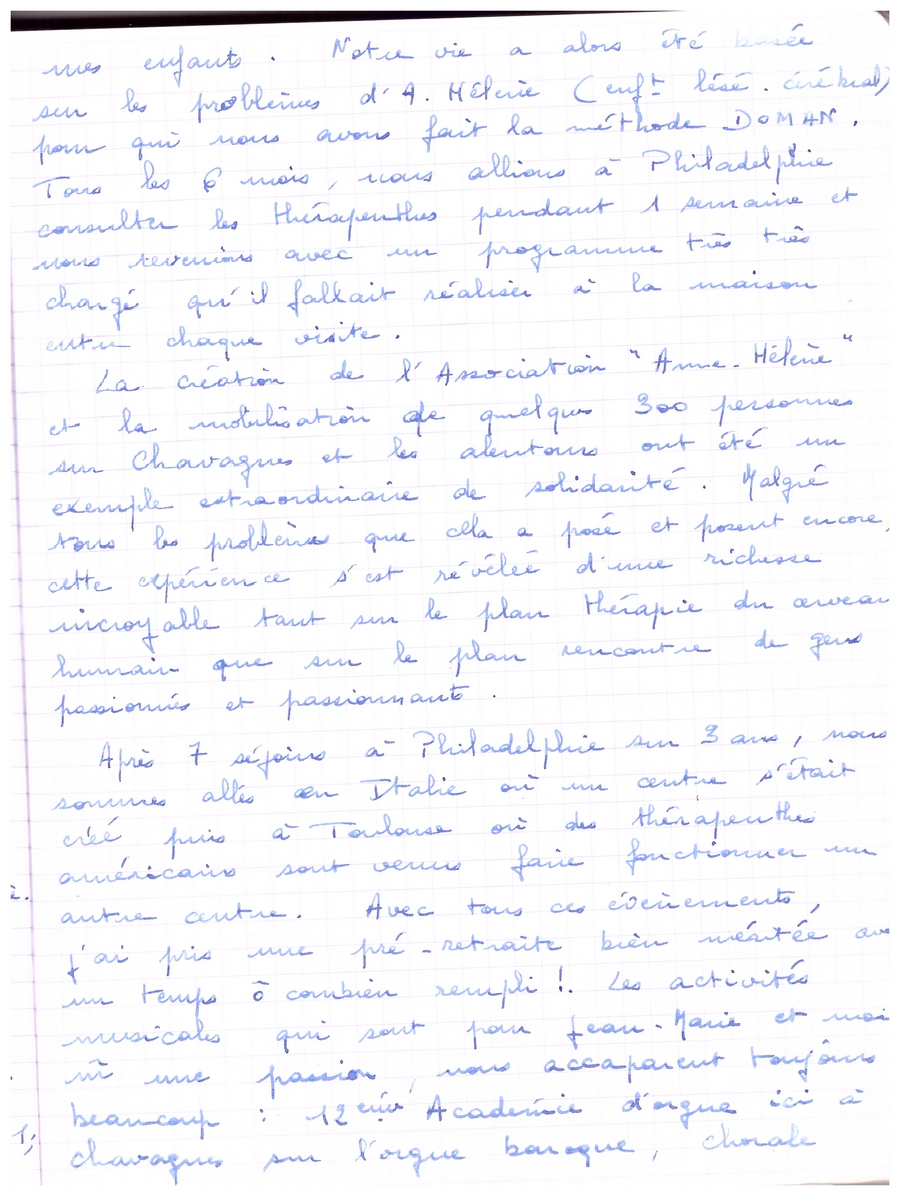 mes enfants. Notre vie a alors été basée
sur les problèmes d'A. Hélène (enft lésé. cérébral)
pour qui nous avons fait la méthode DOMAN.
Tous les 6 mois, nous allions à Philadelphie
consulter les thérapenthes pendant 1 semaine et
nous revenions avec un programme très très
chargé qu'il fallait réaliser à la maison
entre chaque visite.
La création de l'Association "Anne-Hélène"
et la mobilisation de quelques 300 personnes
sur Chavagnes et les alentours ont été un
exemple extraordinaire de solidarité. Malgré
tous les problèmes que cela a posé et posent encore,
cette expérience s'est révélée d'une richesse
incroyable tant sur le plan thérapie du cerveau
humain que sur le plan rencontre de gens
passionnés et passionnants.
Après 7 séjours à Philadelphie sur 3 ans, nous
sommes allés en Italie où un centre s'était
créé puis à Toulouse où des thérapenthes
américains sont venus faire fonctionner un
autre centre. Avec tous ces évènements,
j'ai pris une pré-retraite bien méritée ave
un temps ô combien rempli !. Les activités
musicales qui sont pour Jean-Marie et moi
une passion, nous accaparent toujours
beaucoup : 12ème Académie d'orgue ici à
Chavagnes sur l'orgue baroque, chorale